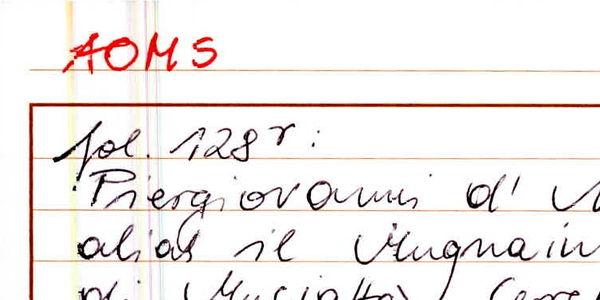 AOMS
fol. 128r:
Piergiovanni d'
alias il Mugnain
di